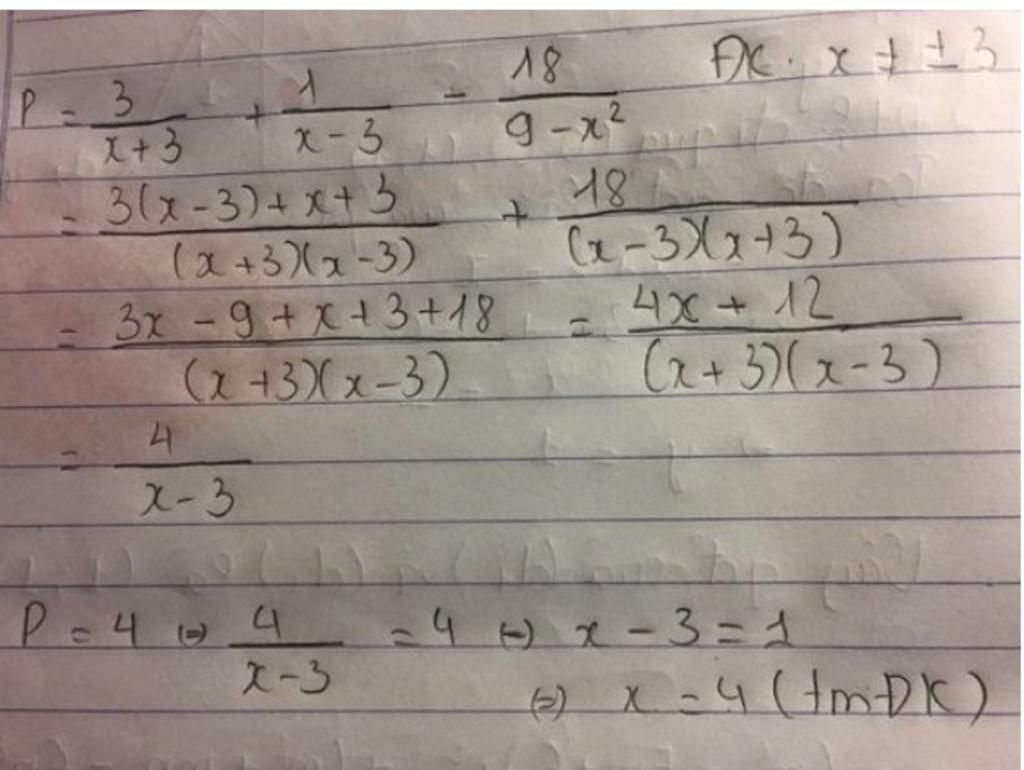 P = 3/(x+3) + 1/(x-3) - 18/(9-x²) ĐK: x ≠ ±3
= (3(x-3)+x+3)/((x+3)(x-3)) + 18/((x-3)(x+3))
= (3x-9+x+3+18)/((x+3)(x-3)) = (4x+12)/((x+3)(x-3))
= 4/(x-3)
P = 4 ⇔ 4/(x-3) = 4 ⇔ x - 3 = 1
⇔ x = 4 (tmĐK)